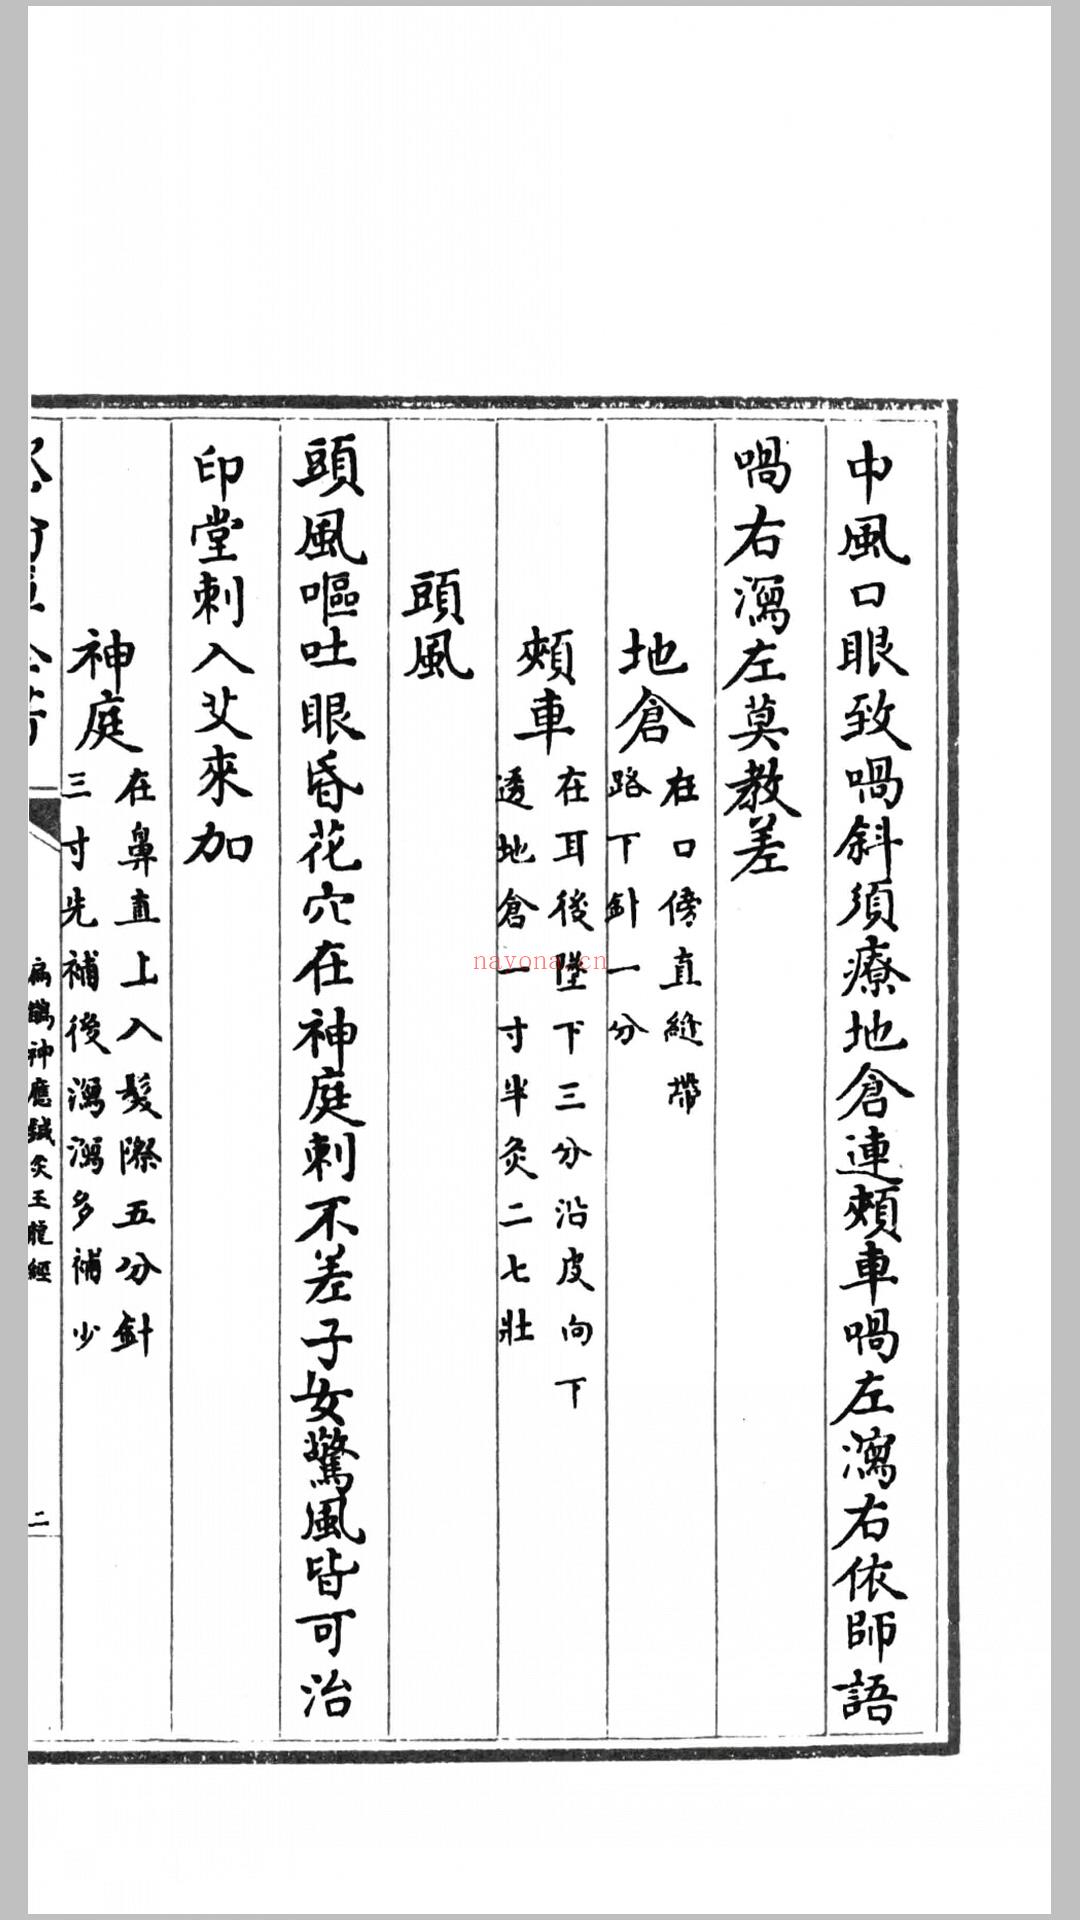 中風口眼致喎斜須療地倉連頰車喎左瀉右依師語
喎右瀉左莫教差
地倉
在口傍直縫帶
路下針一分
頰車
在耳後墜下三分沿皮向下
透地倉一寸半灸二七壯
頭風
頭風嘔吐眼昏花穴在神庭刺不差子女驚風皆可治
印堂刺入艾來加
神庭
在鼻直上入髮際五分針
三寸先補後瀉瀉多補少
扁鵲神應鍼灸玉龍經
二
nayona.cn